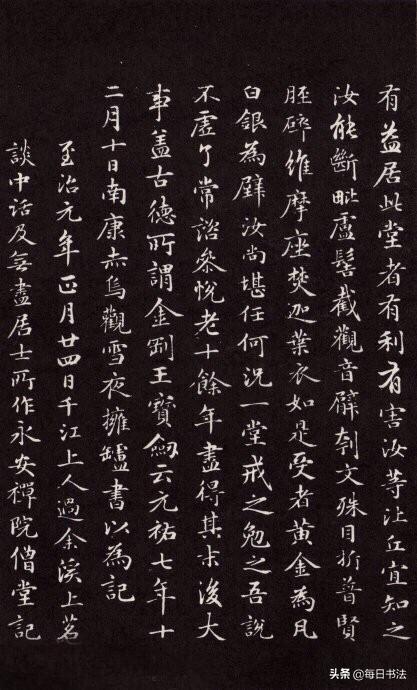 有益居此堂者有利有害汝等比丘宜知之
汝能斷毗盧髻截觀音臂刳文殊目折普賢
脛碎維摩座焚迦葉衣如是受者黃金為瓦
白銀為壁汝尚堪任何況一堂戒之勉之吾說
不虛了常諮參悅老十餘年盡得其末後大
事蓋古德所謂金剛王寶劍云元祐七年十
二月十日南康赤烏觀雪夜擁罏書以為記
至治元年正月廿四日千江上人過余溪上茗
談中話及無盡居士所作永安禪院僧堂記
头条 @每日书法